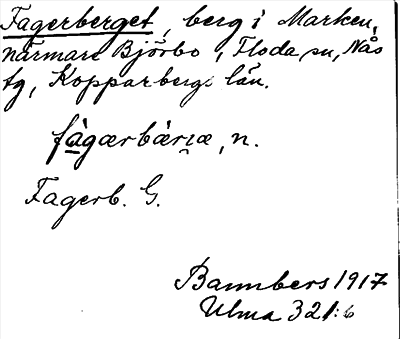 Fagerberget, berg i Marken,
närmare Björbo, Floda sn, Nås
tg, Kopparbergs län.
fàgærbærɪæ, n.
Fagerb. G.
Bannbers 1917
Ulma 321:6